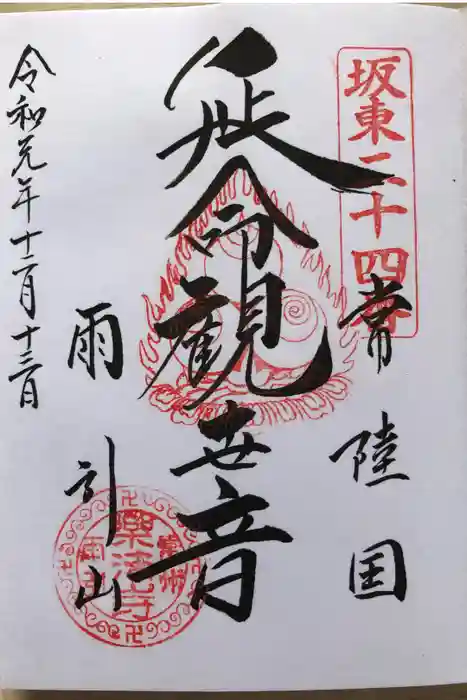 坂東二十四番
常陸国
延命観世音
雨引山
令和元年十二月十三日
常州
樂法寺
雨引